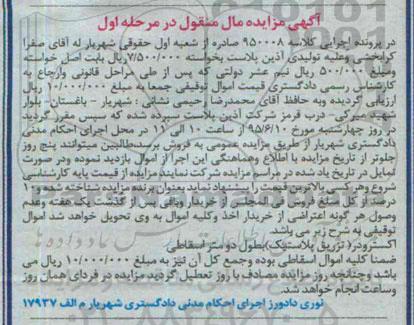 آگهی مزایده مال منقول در مرحله اول
در پرونده اجرایی کلاسه ۹۵۰۰۰۸ صادره از شعبه اول حقوقی شهریار له آقای صفرا
کرابخشی وعلیه تولیدی آذین پلاست بخواسته ۷/۵۰۰/۰۰۰ریال بابت اصل خواسته
ومبلغ ۵۰۰/۰۰۰ ریال نیم عشر دولتی که پس از طی مراحل قانونی وارجاع به
کارشناس رسمی دادگستری قیمت اموال توقیفی جمعا به مبلغ ۱۰/۰۰۰/۰۰۰ریال
ارزیابی گردیده وبه حافظ آقای محمدرضا حیمی نشانی : شهریار - باغستان- بلوار
شهید میرکی- درب قرمز شرکت آذین پلاست سپرده شده که سپس مقرر گردید
در روز چهارشنبه مورخ ۹۵/۶/۱۰ از ساعت ۱۰ الی ۱۱ در محل اجرای احکام مدنی
دادگستری شهریار از طریق مزایده عمومی به فروش برسد.طالبین میتوانند پنج روز
جلوتر از تاریخ مزایده با اطلاع وهماهنگی این اجرا از اموال بازدید نموده ودر صورت
تمایل در تاریخ یاد شده در مراسم مزایده شرکت نمایند.مزایده از قیمت پایه کارشناسی
شروع وهرکسی بالاترین قیمت را پیشنهاد نماید بعنوان برنده مزایده شناخته شده و۱۰
درصد از کل مبلغ فروش فی المجلس از خریدار وباقی پس از گذشت یک هفته وعدم
وصول هر گونه اعتراضی از خریدار اخذ وکلیه اموال به وی تحویل خواهد شد اموال
توقیفی به شرح زیر می باشد.
اکسترودر( تزریق پلاستیک)بطول دو متر اسقاطی
ضمنا کلیه اموال اسقاطی بوده وجمع کل آن نیز به مبلغ ۱۰/۰۰۰/۰۰۰ ریال می
باشد وچنانچه روز مزایده مصادف با روز تعطیل گردید مزایده در فردای همان روز
وساعت انجام خواهد شد.
نوری دادورز اجرای احکام مدنی دادگستری شهریار م الف ۱۷۹۳۷